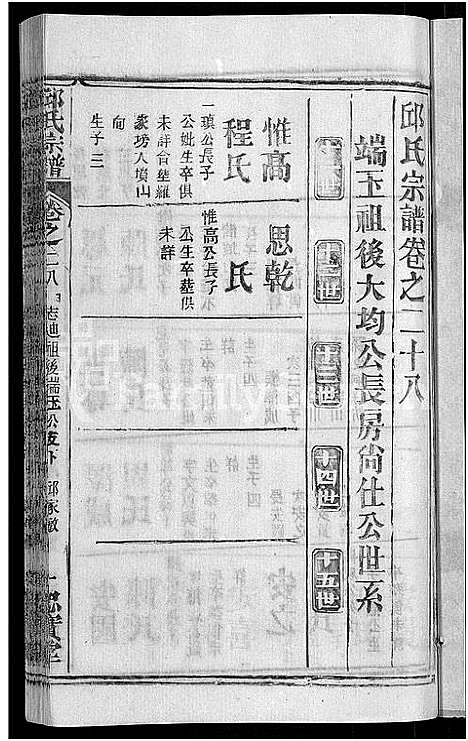 邱氏宗譜卷之二十八
端玉祖後大均公長房尚仕公世系
十三世
十四世
十五世
惟高
程氏
一瓊公長子
公妣生卒俱
未詳合塟羅
家塝人墳山
向
生子三
思乾
氏
惟高公長子
公生卒塟俱
未詳
邱氏宗譜
卷之二八
祖後端玉公支下